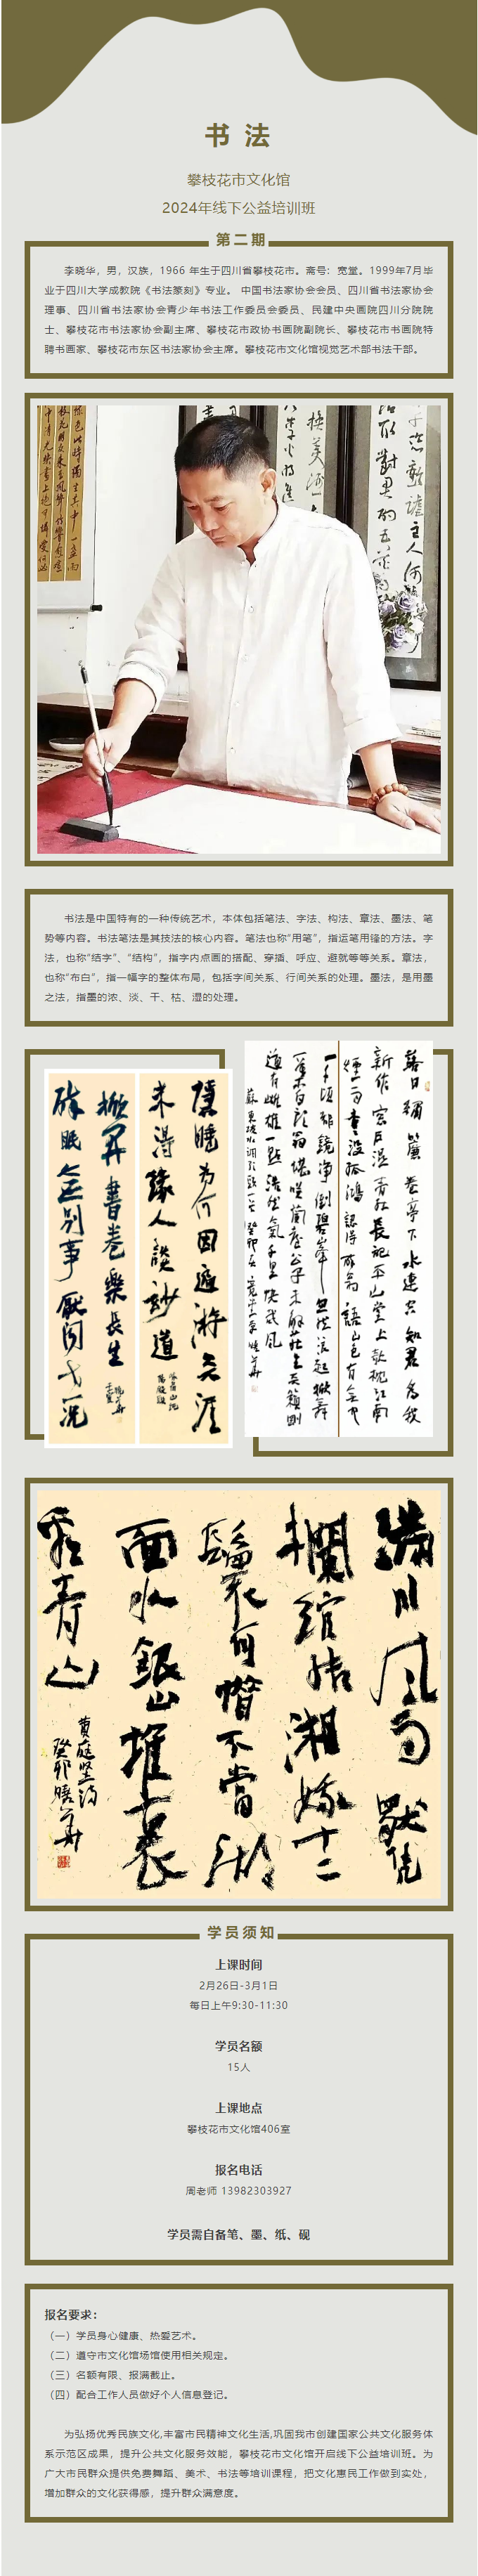 书 法
攀枝花市文化馆
2024年线下公益培训班
第二期
李晓华，男，汉族，1966 年生于四川省攀枝花市。斋号：宽堂。1999年7月毕
业于四川大学成教院《书法篆刻》专业。 中国书法家协会会员、四川省书法家协会
理事、四川省书法家协会青少年书法工作委员会委员、民建中央画院四川分院院
士、攀枝花市书法家协会副主席、攀枝花市政协书画院副院长、攀枝花市书画院特
聘书画家、攀枝花市东区书法家协会主席。攀枝花市文化馆视觉艺术部书法干部。
书法是中国特有的一种传统艺术，本体包括笔法、字法、构法、章法、墨法、笔
势等内容。书法笔法是其技法的核心内容。笔法也称“用笔”，指运笔用锋的方法。字
法，也称“结字”、“结构”，指字内点画的搭配、穿插、呼应、避就等等关系。章法，
也称“布白”，指一幅字的整体布局，包括字间关系、行间关系的处理。墨法，是用墨
之法，指墨的浓、淡、干、枯、湿的处理。
落日繡簾卷亭下水連空知君為我
新作窗戶濕青紅長記平山堂上欹枕江南
煙雨杳杳沒孤鴻認得醉翁語山色有無中
一千頃都鏡淨倒碧峰忽然浪起掀舞
一葉白頭翁堪笑蘭臺公子未解莊生天籟剛
道有雌雄一點浩然氣千里快哉風
滿川風雨獨憑
欄綰結湘娥十二
鬟不當湖
面水銀山堆裏
看青山
黄庭坚诗
癸卯晓华
学员须知
上课时间
2月26日-3月1日
每日上午9:30-11:30
学员名额
15人
上课地点
攀枝花市文化馆406室
报名电话
周老师 13982303927
学员需自备笔、墨、纸、砚
报名要求：
（一）学员身心健康、热爱艺术。
（二）遵守市文化馆场馆使用相关规定。
（三）名额有限、报满截止。
（四）配合工作人员做好个人信息登记。
为弘扬优秀民族文化,丰富市民精神文化生活,巩固我市创建国家公共文化服务体
系示范区成果，提升公共文化服务效能，攀枝花市文化馆开启线下公益培训班。为
广大市民群众提供免费舞蹈、美术、书法等培训课程，把文化惠民工作做到实处，
增加群众的文化获得感，提升群众满意度。